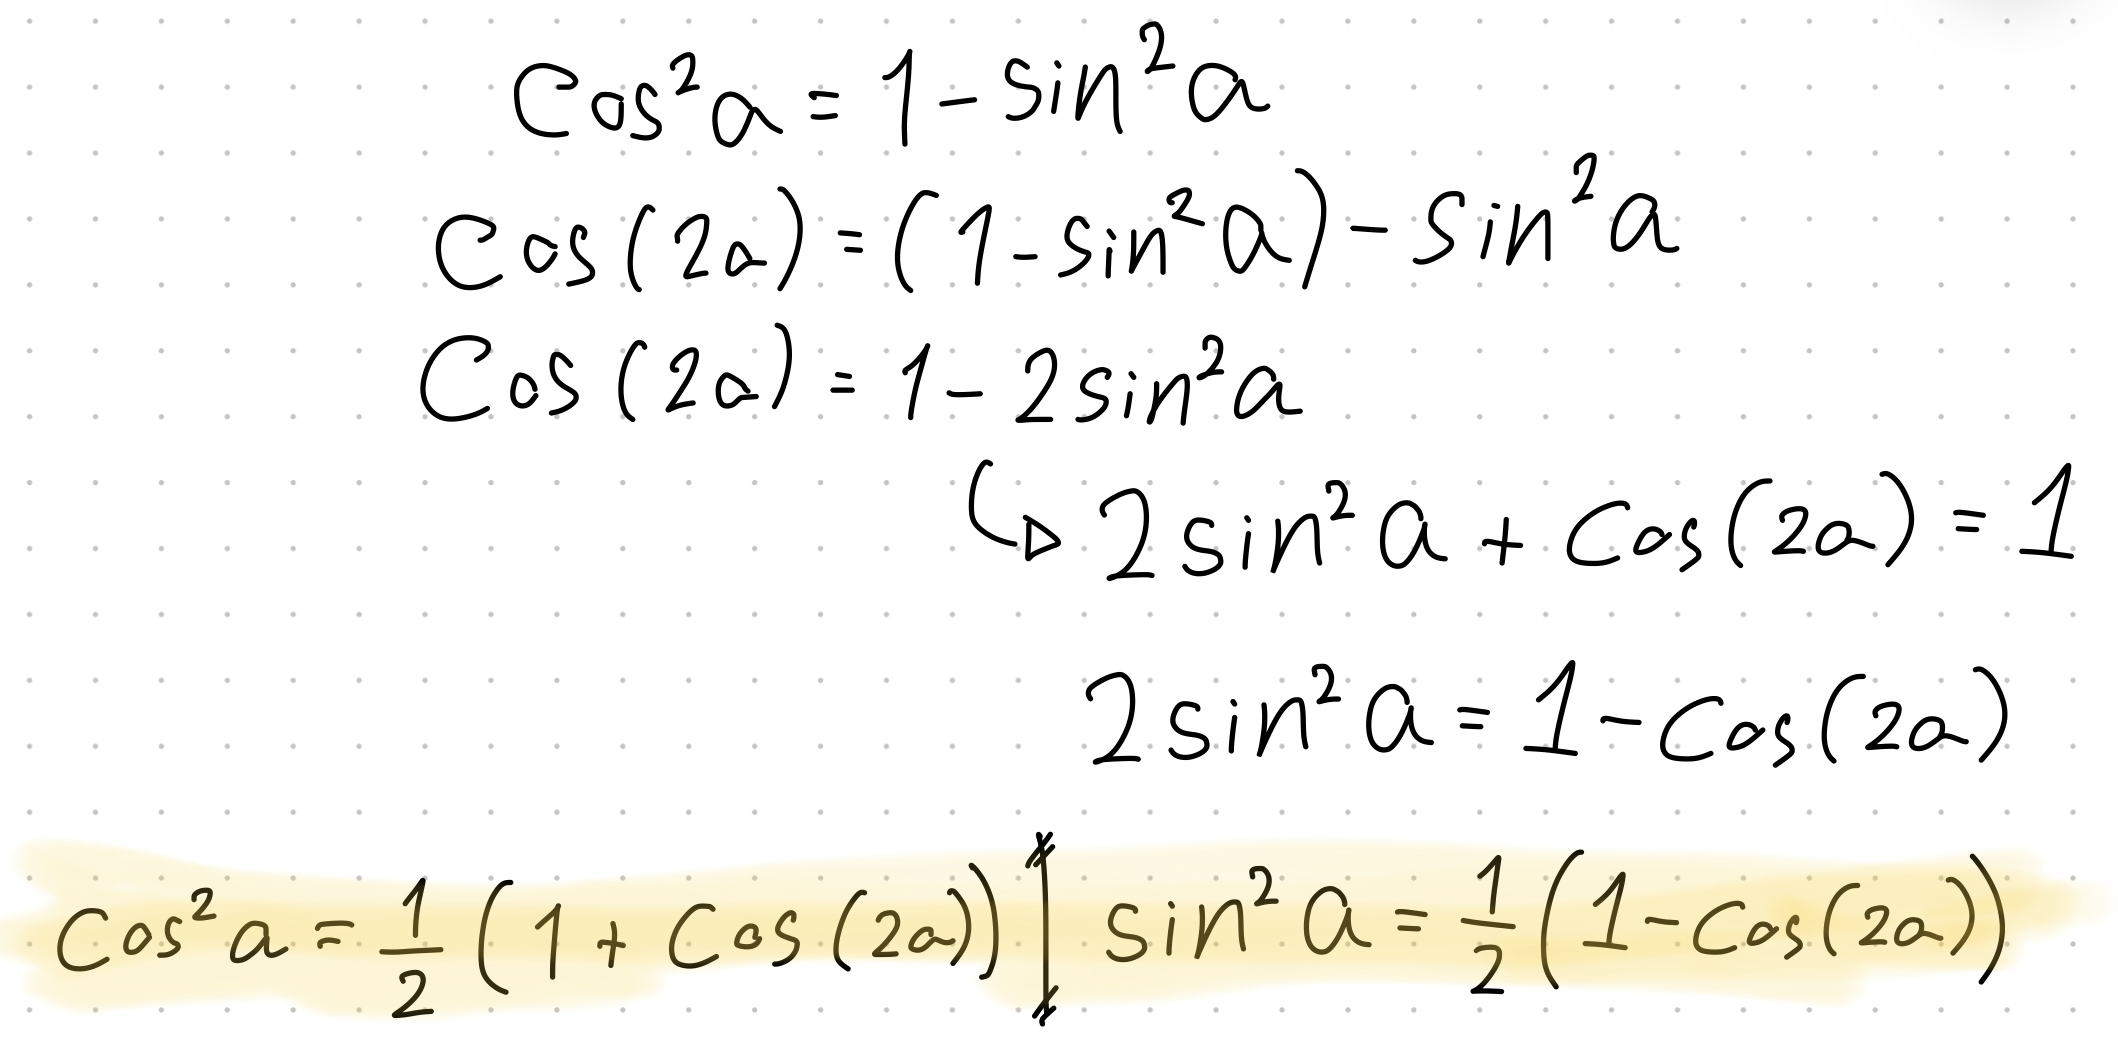 Cos²a = 1 - sin²a
Cos(2a) = (1 - sin²a) - sin²a
Cos(2a) = 1 - 2sin²a
↳ 2sin²a + Cos(2a) = 1
2sin²a = 1 - Cos(2a)
Cos²a = 1/2 (1 + Cos(2a)) | sin²a = 1/2 (1 - Cos(2a))